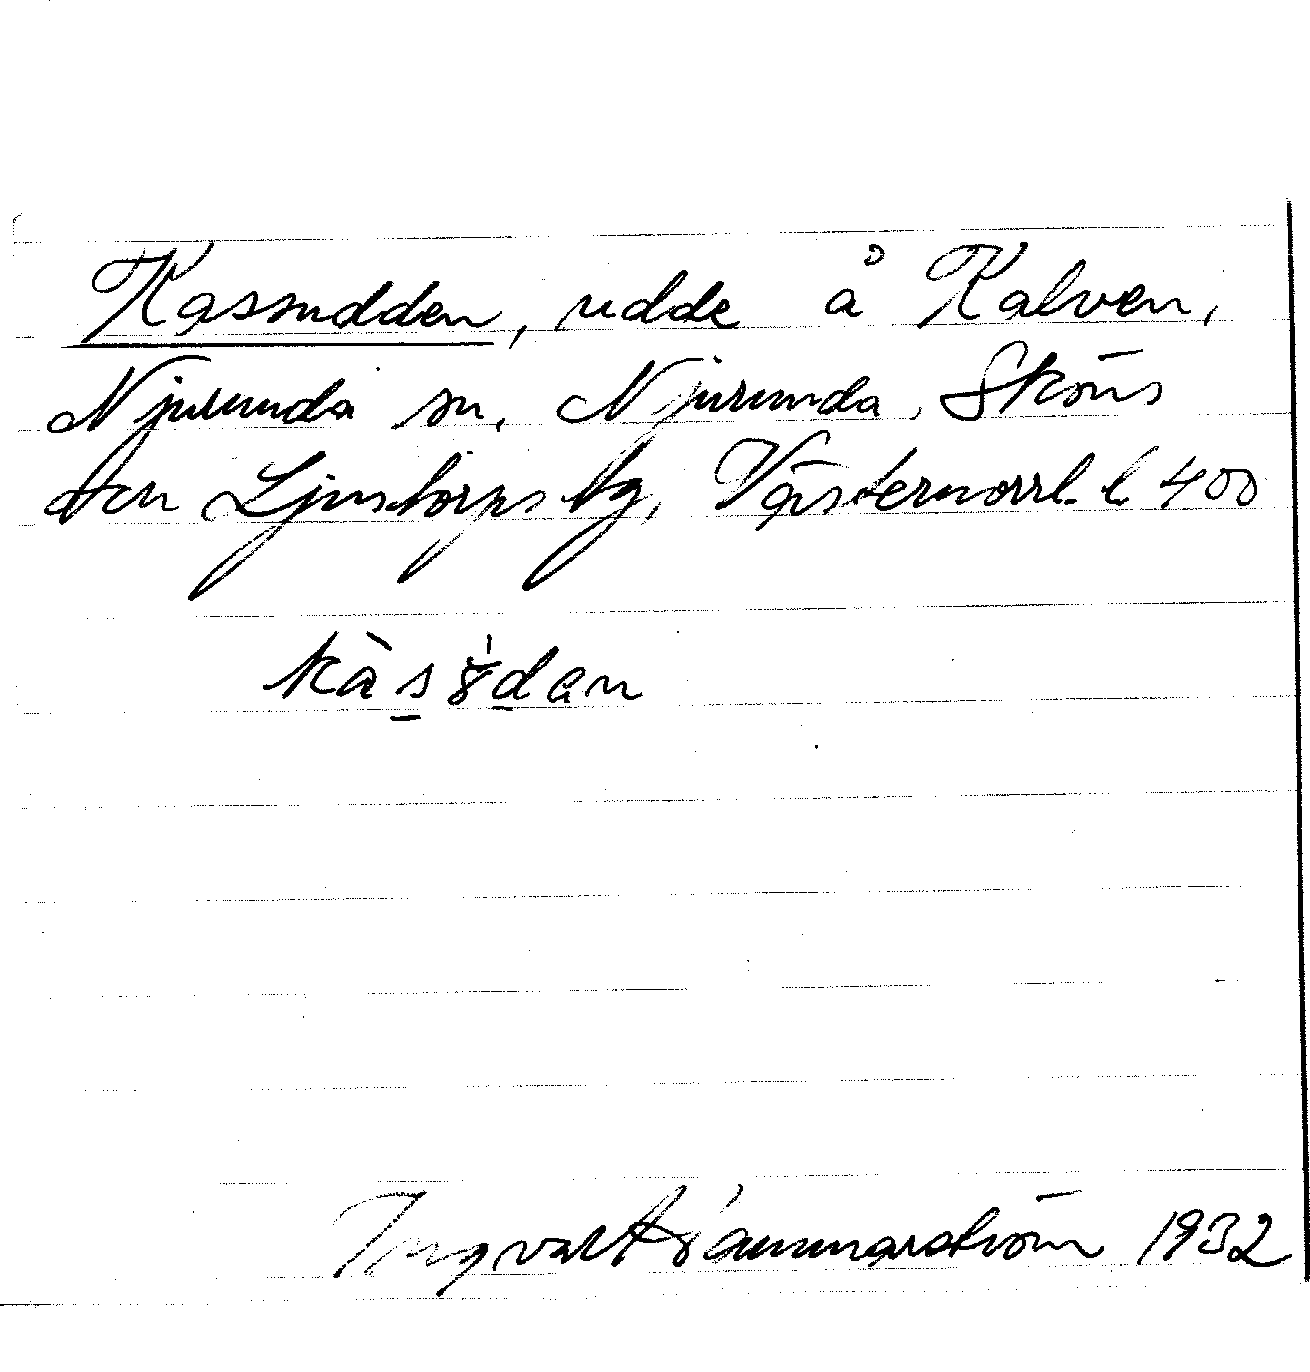 Kasudden, udde å Kalven,
Njurunda sn, Njurunda, Sköns
och Ljustorps tg, Västernorrl. l 400
Ingvar Hammarström 1932